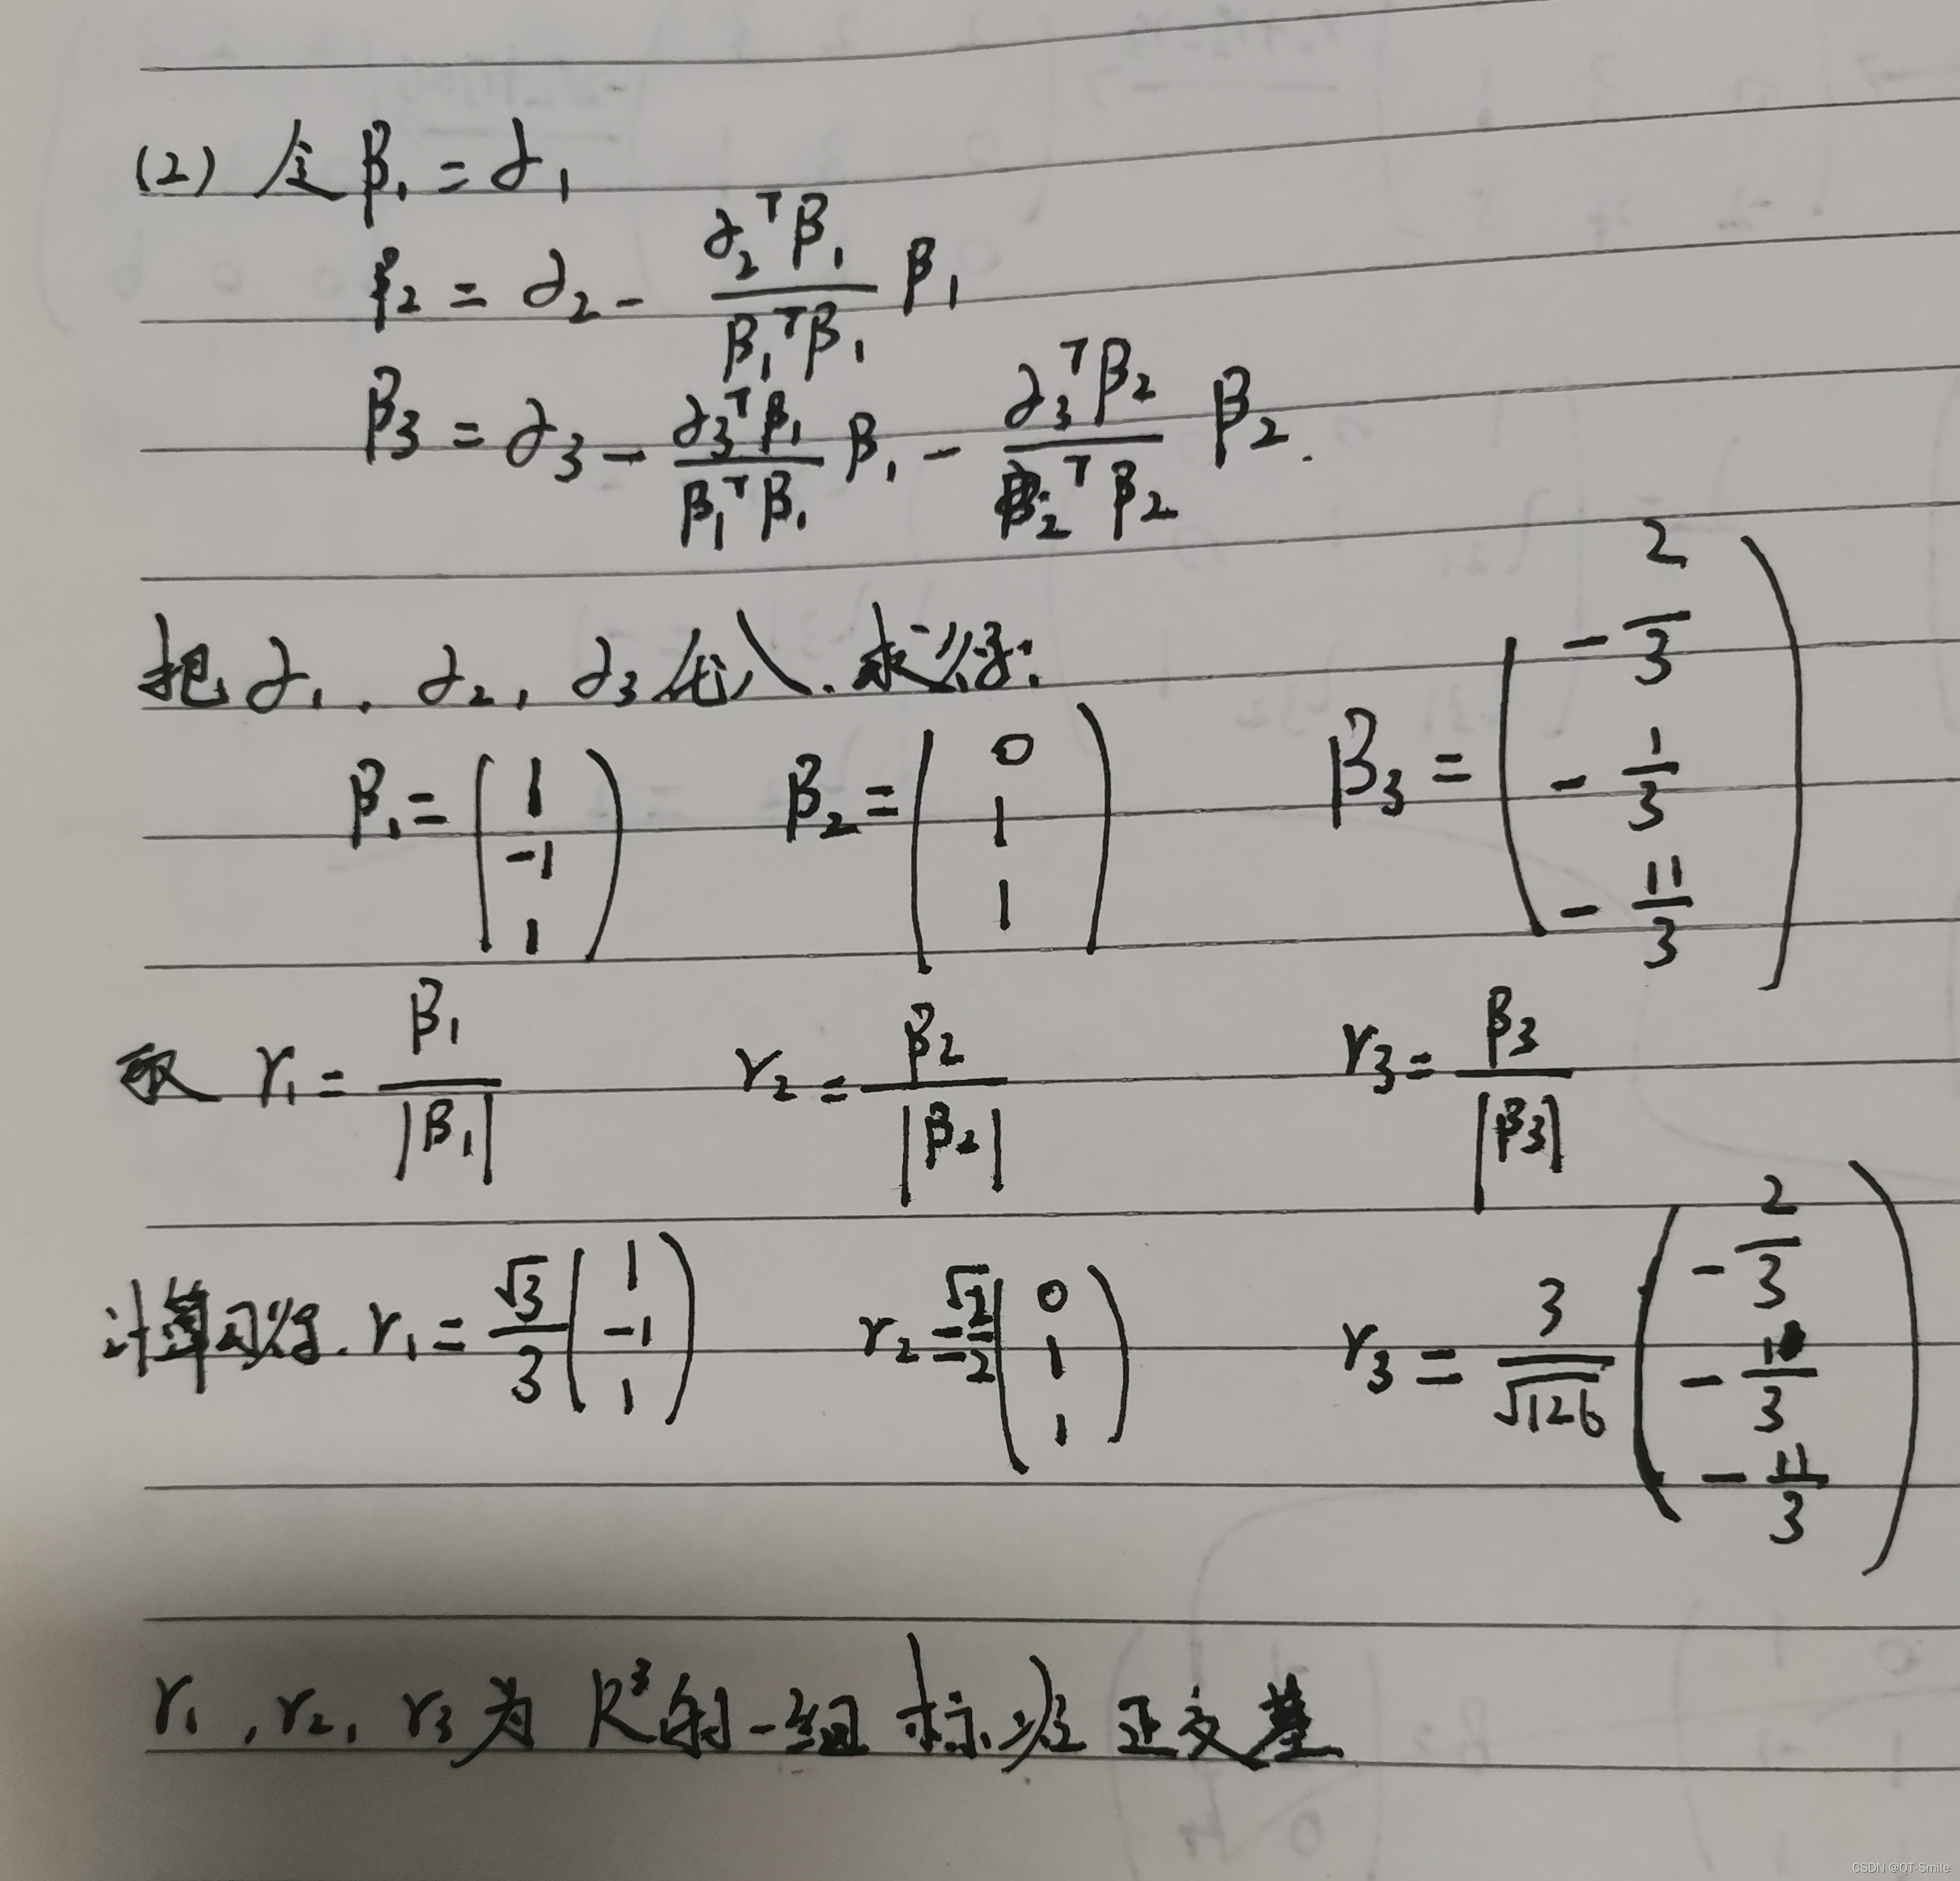 (2) 令 β₁ = α₁
β₂ = α₂ - (α₂ᵀβ₁)/(β₁ᵀβ₁) β₁
β₃ = α₃ - (α₃ᵀβ₁)/(β₁ᵀβ₁) β₁ - (α₃ᵀβ₂)/(β₂ᵀβ₂) β₂.
把 α₁, α₂, α₃ 代入. 求得:
β₁ = (1, -1, 1) β₂ = (0, 1, 1) β₃ = (-2/3, -1/3, -11/3)
取 γ₁ = β₁/|β₁| γ₂ = β₂/|β₂| γ₃ = β₃/|β₃|
计算可得. γ₁ = √3/3 (1, -1, 1) γ₂ = √2/2 (0, 1, 1) γ₃ = 3/√126 (-2/3, -1/3, -11/3)
γ₁, γ₂, γ₃ 为 R³ 的一组 标准 正交基
CSDN @QT-Smile